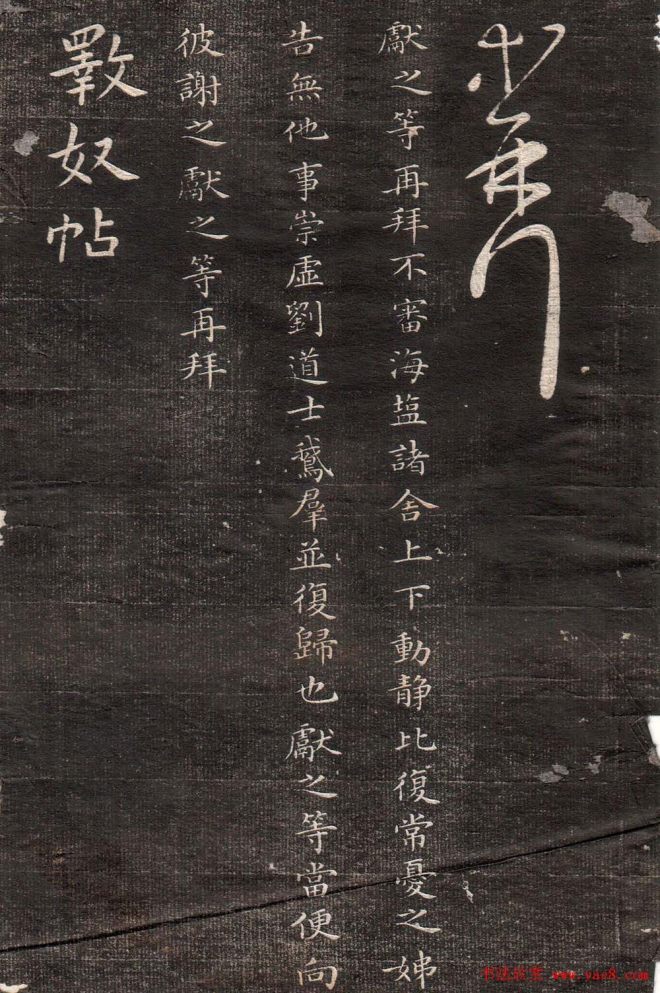 獻之等再拜不審海塩諸舍上下動静比復常憂之姊
告無他事崇虛劉道士鵞羣並復歸也獻之等當便向
彼謝之獻之等再拜
斁奴帖
书法欣赏 www.yac8.com